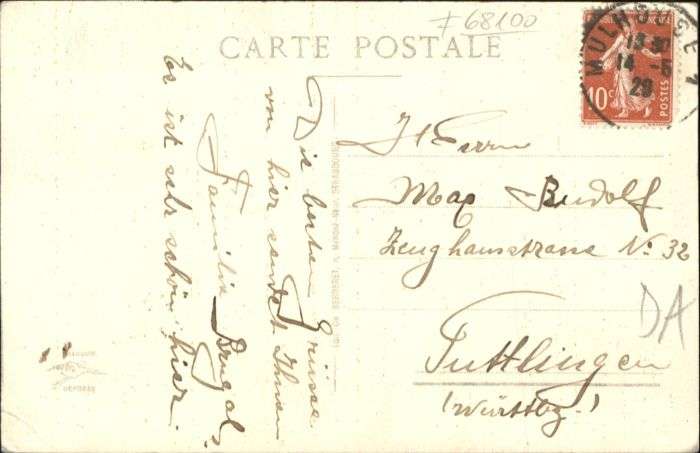 # 68100
CARTE POSTALE
MULHOUSE
14 -5
29
POSTES
10c
Die besten Grüsse
von hier sendet Ihnen
Familie
Es ist sehr schön hier.
Herrn
Max Rudolf
Zeughausstrasse No 32
Tuttlingen
(Württbg.)
DA